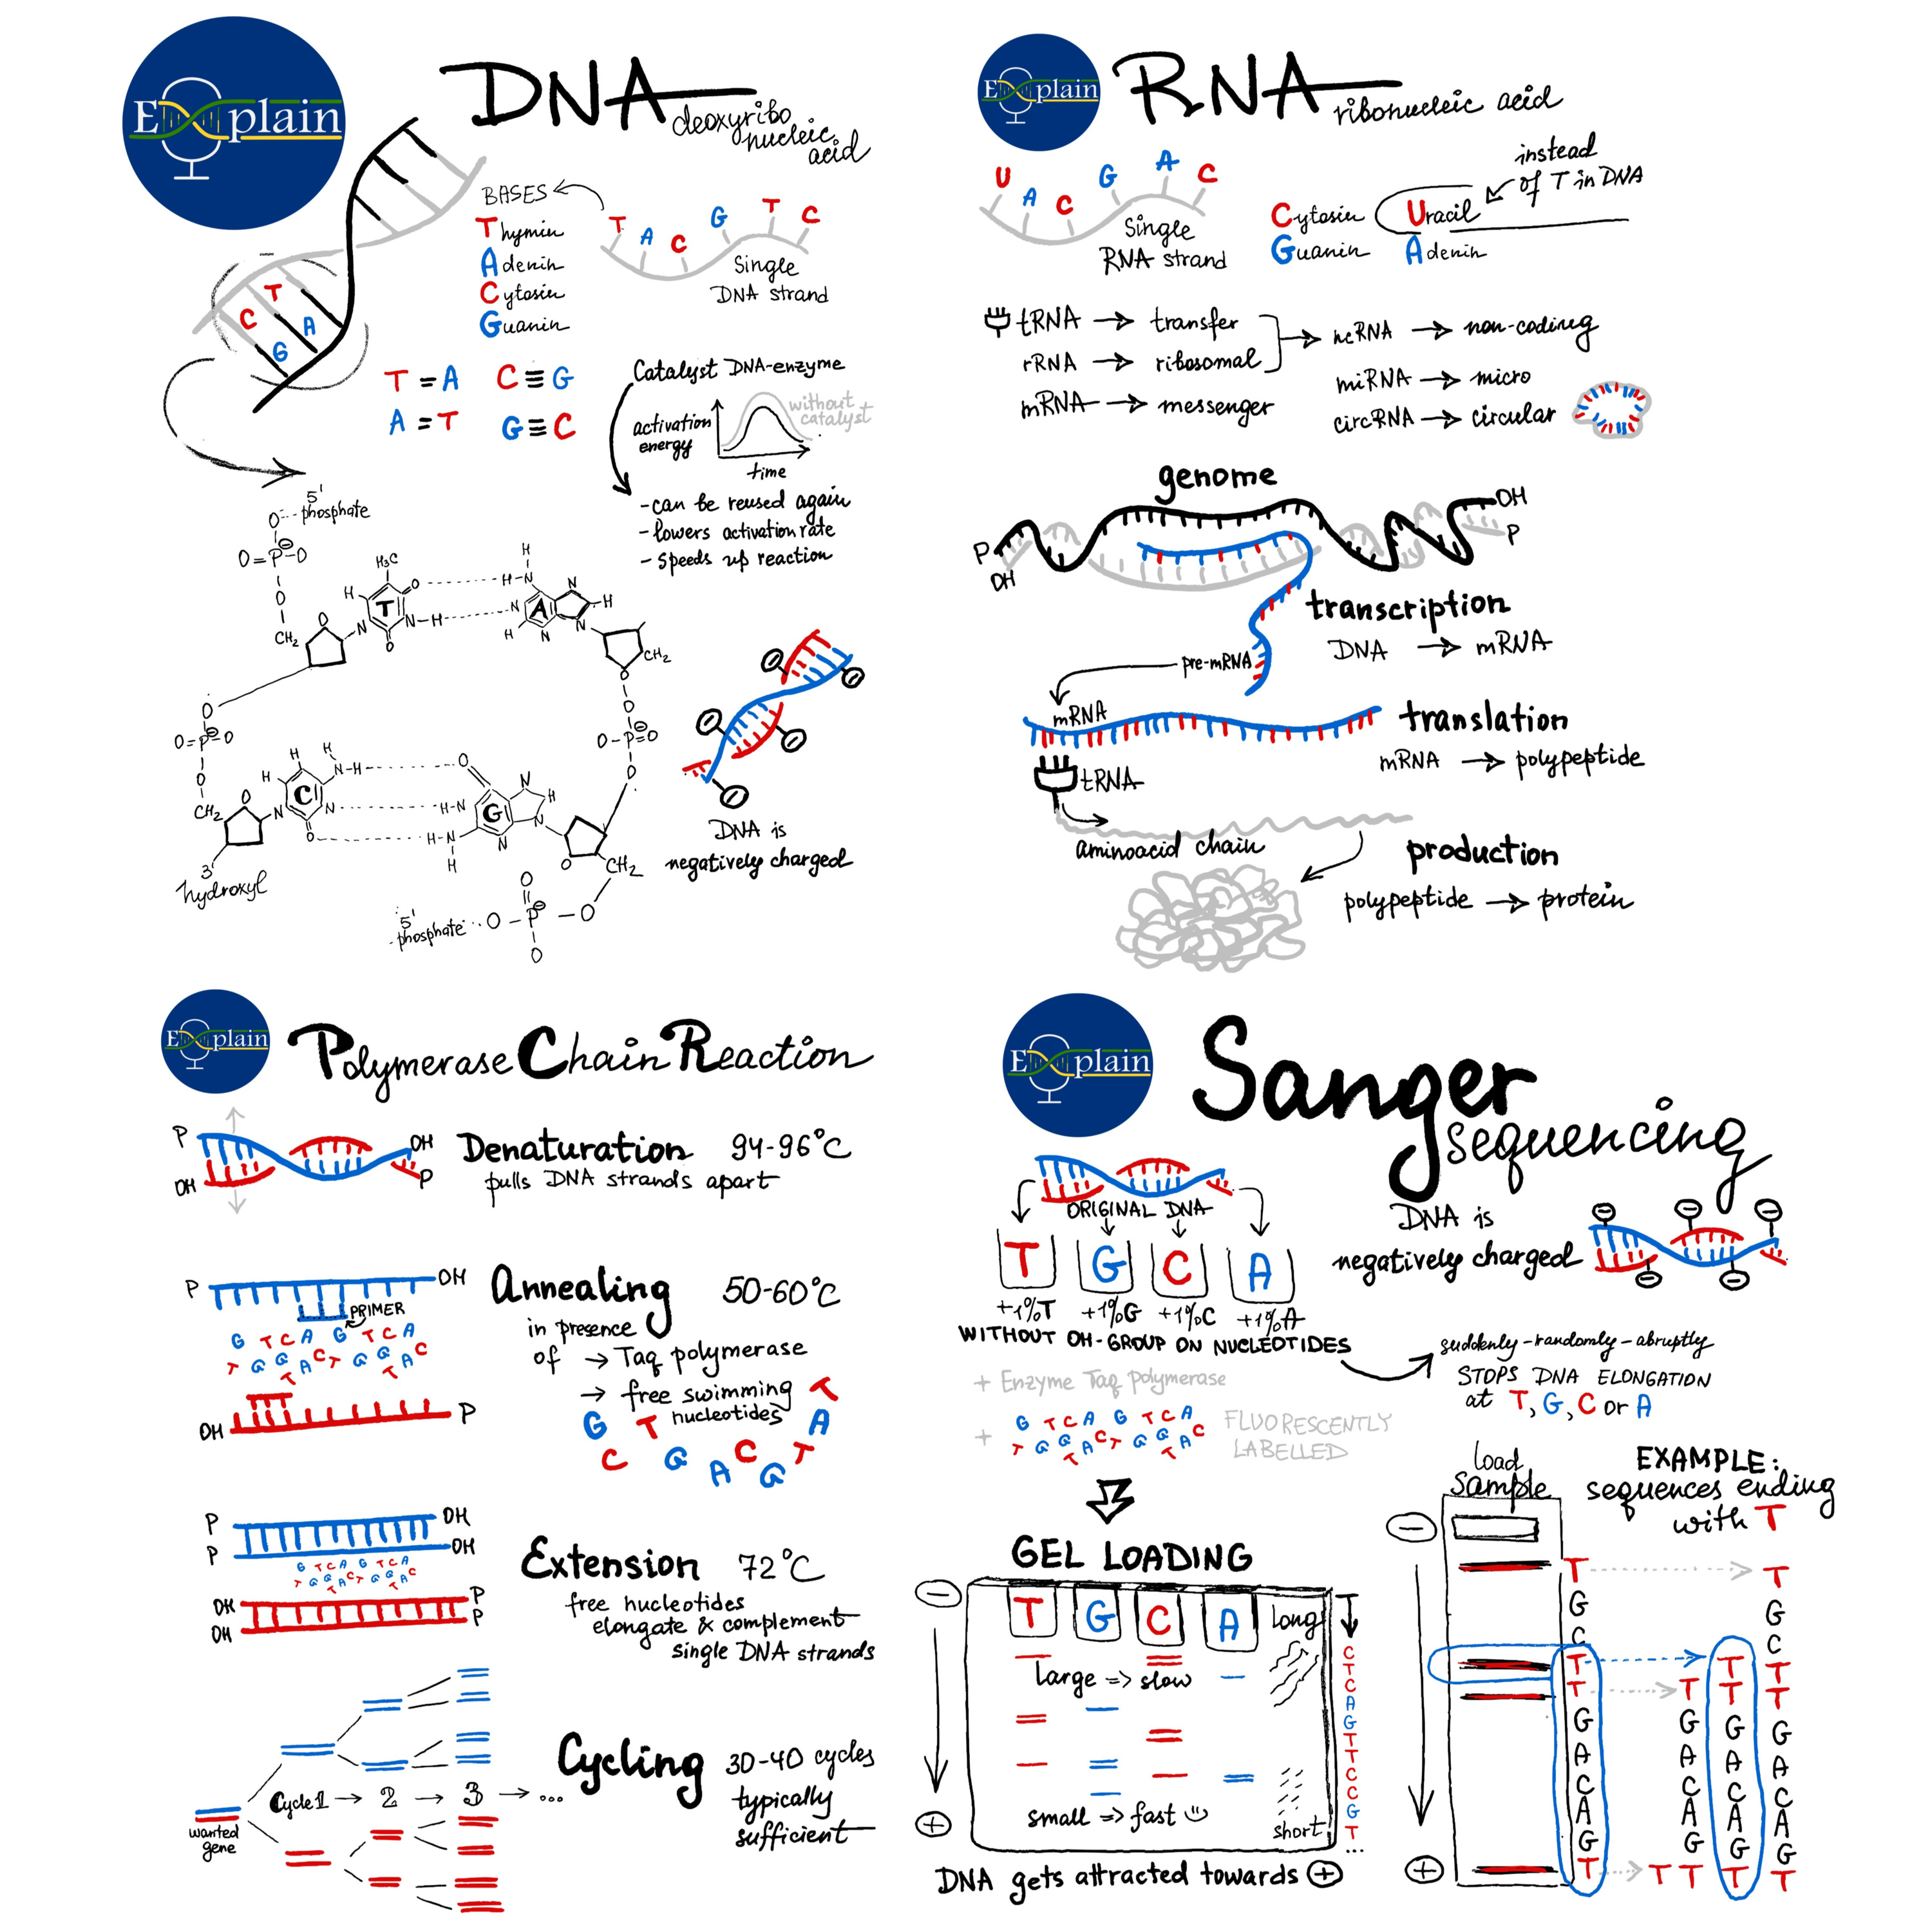 Explain
DNA
deoxyribo
nucleic
acid
BASES
Thymin
Adenin
Cytosin
Guanin
T A C G T C
Single
DNA strand
T
C
A
G
T = A C ≡ G
A = T G ≡ C
Catalyst DNA-enzyme
activation
energy
without
catalyst
time
- can be reused again
- lowers activation rate
- speeds up reaction
5'
phosphate
O
O=P-O
O
CH2
O
N
H
H3C
T
O
N-H
O
H
H-N
N
A
N
H
N
N
H
CH2
O
O
O-P=O
O
O
O=P-O
O
CH2
O
N
H
H
H
N-H
C
N
O
O
H-N
H-N
H
G
N
N
H
N
O
CH2
O
3'
hydroxyl
5'
phosphate
O - P - O
O
O
DNA is
negatively charged
Explain
RNA
ribonucleic acid
U A C G A C
Single
RNA strand
Cytosin Uracil
Guanin Adenin
instead
of T in DNA
tRNA → transfer
rRNA → ribosomal
mRNA → messenger
ncRNA → non-coding
miRNA → micro
circRNA → circular
genome
P
OH
OH
P
transcription
DNA → mRNA
pre-mRNA
mRNA
translation
mRNA → polypeptide
tRNA
aminoacid chain
production
polypeptide → protein
Explain
Polymerase Chain Reaction
P
OH
OH
P
Denaturation 94-96°C
pulls DNA strands apart
P
OH
PRIMER
G T C A G T C A
T G G A C T G G A C
T T
OH
P
Annealing 50-60°C
in presence
of → Taq polymerase
→ free swimming
nucleotides
G T T A
C G A C G T
P
P
OH
OH
G T C A G T C A
T G G A C T G G A C
T T
OH
OH
P
P
Extension 72°C
free nucleotides
elongate & complement
single DNA strands
wanted
gene
Cycle 1 → 2 → 3 → ...
Cycling 30-40 cycles
typically
sufficient
Explain
Sanger
sequencing
ORIGINAL DNA
T G C A
+1%T +1%G +1%C +1%A
WITHOUT OH-GROUP ON NUCLEOTIDES
+ Enzyme Taq polymerase
+
G T C A G T C A
T G G A C T G G A C
T T
FLUORESCENTLY
LABELLED
DNA is
negatively charged
suddenly - randomly - abruptly
STOPS DNA ELONGATION
at T, G, C or A
GEL LOADING
T G C A
long
large => slow
small => fast
short
C
T
C
A
G
T
T
C
C
G
T
...
DNA gets attracted towards +
load
sample
EXAMPLE:
sequences ending
with T
T
G
C
T
T
G
A
C
A
G
T
T
T
G
A
C
A
G
T
T
T
G
A
C
A
G
T
T
G
C
T
T
G
A
C
A
G
T